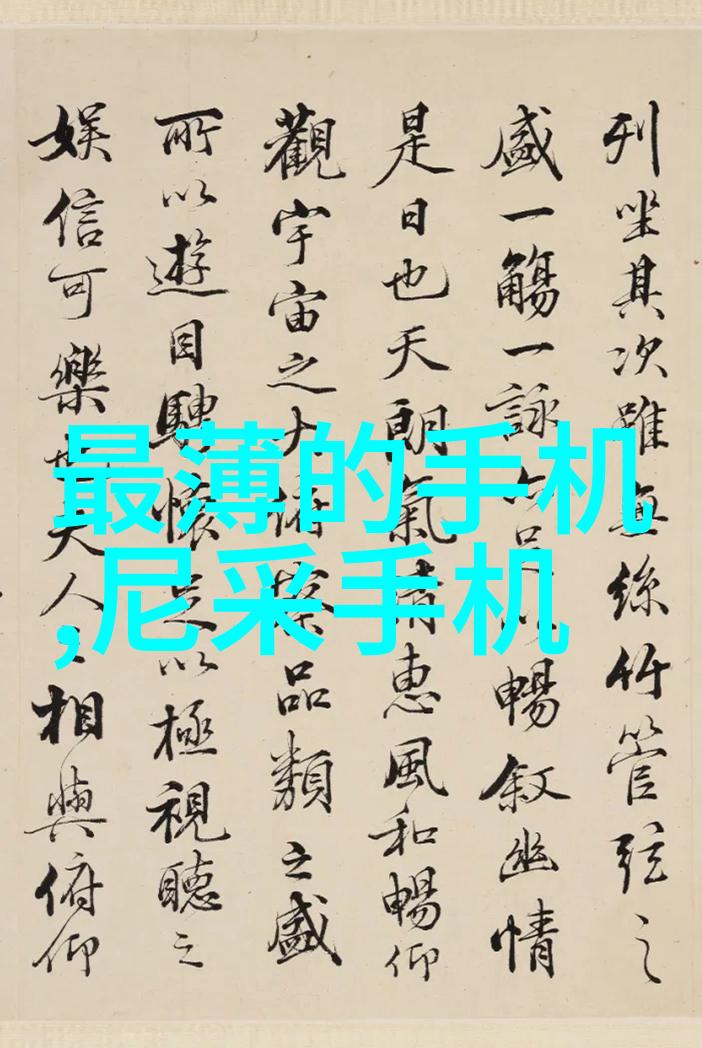 列坐其次雖無絲竹管弦之
盛一觴一詠亦足以暢叙幽情
是日也天朗氣清惠風和暢仰
觀宇宙之大俯察品類之盛
所以遊目騁懷足以極視聽之
娛信可樂也夫人之相與俯仰
最薄的手机
,尼采手机